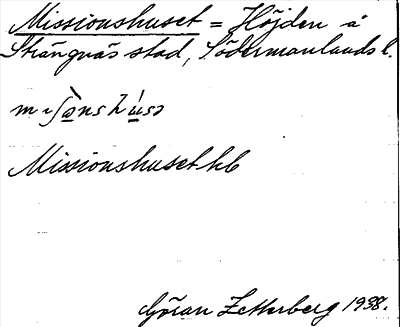 Missionshuset = Höjden å
Strängnäs stad, Södermanlands l.
Missionshuset hb
Göran Zetterberg 1938.